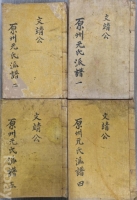 文靖公
原州元氏派譜 一
文靖公
原州元氏派譜 二
文靖公
原州元氏派譜 三
文靖公
原州元氏派譜 四